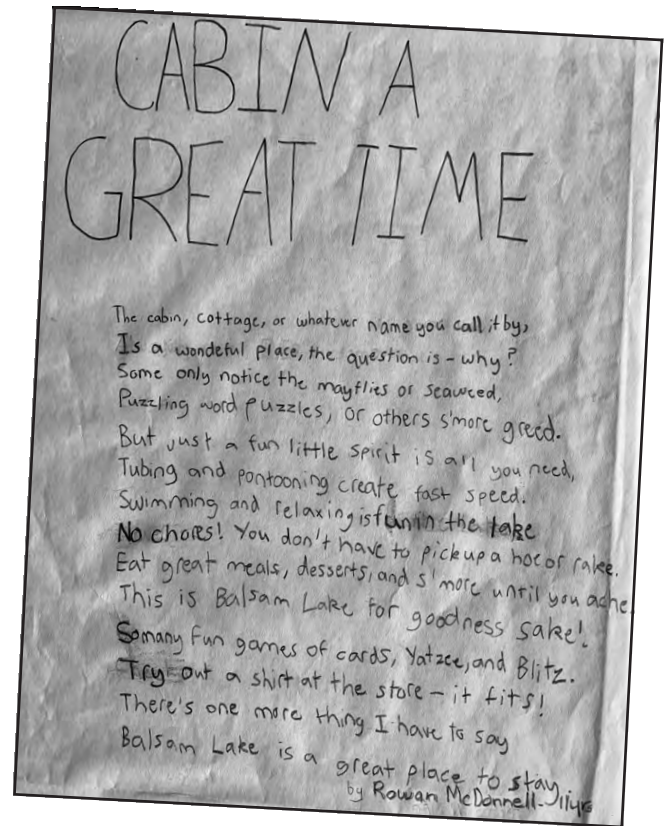 CABIN A
GREAT TIME
The cabin, cottage, or whatever name you call it by,
Is a wondeful place, the question is - why?
Some only notice the mayflies or seaweed,
Puzzling word puzzles, or others s'more greed.
But just a fun little spirit is all you need,
Tubing and pontooning create fast speed.
Swimming and relaxing is fun in the lake
No chores! You don't have to pick up a hoe or rake.
Eat great meals, desserts, and s'more until you ache
This is Balsam Lake for goodness sake!
So many fun games of cards, Yatzee, and Blitz.
Try out a shirt at the store - it fits!
There's one more thing I have to say
Balsam Lake is a great place to stay
by Rowan McDonnell - 11yrs